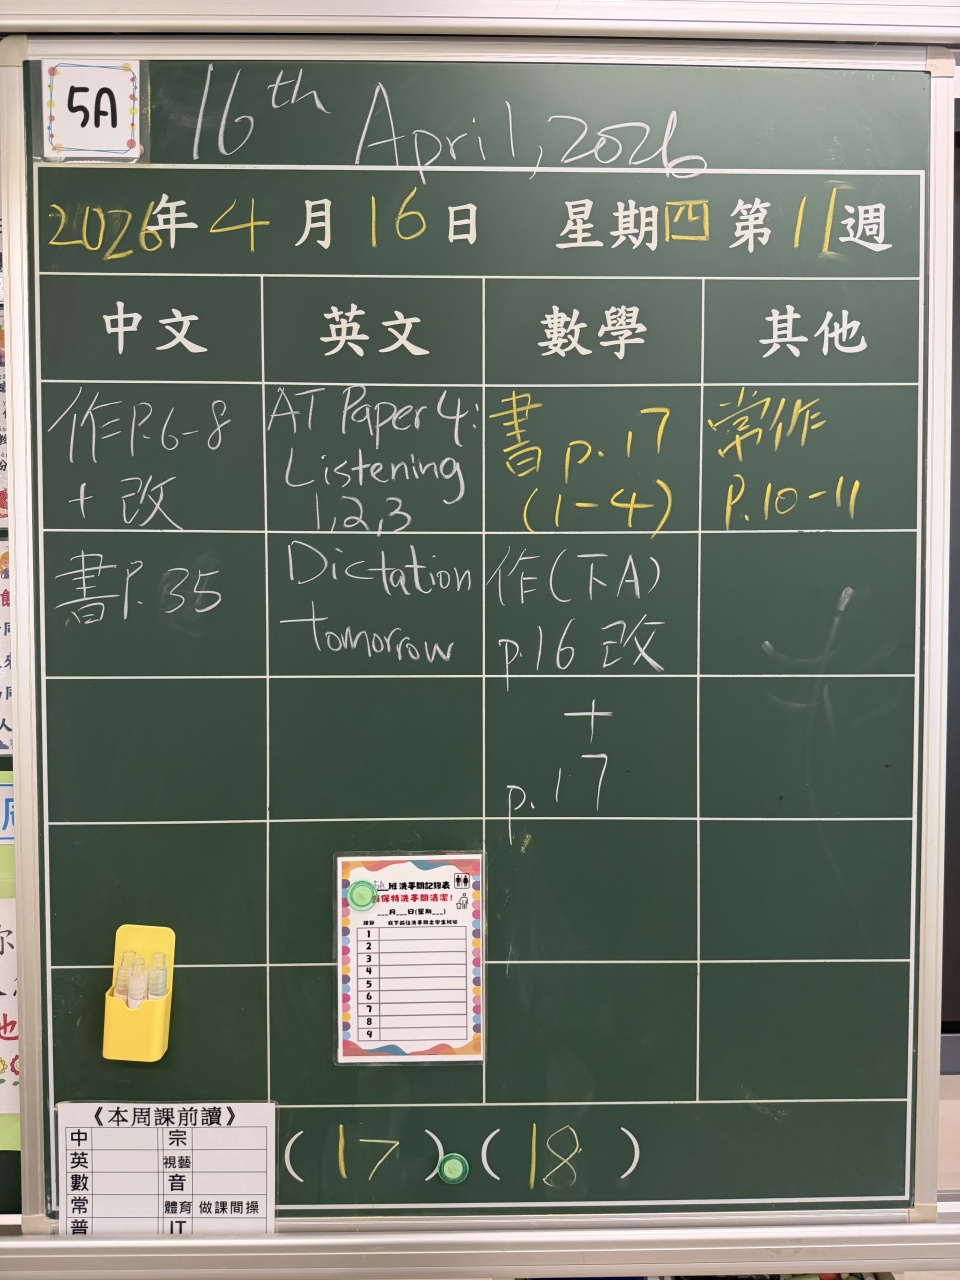 5A
16th April, 2026
2026年4月16日 星期四 第11週
中文 英文 數學 其他
作P.6-8
+ 改
AT Paper 4:
Listening
1,2,3
書 p.17
(1-4)
常作
P.10-11
書P.35
Dictation
tomorrow
作(下A)
p.16 改
+
p.17
5A班洗手間記錄表
保持洗手間清潔!
___月___日(星期___)
1
2
3
4
5
6
7
8
9
《本周課前讀》
中 宗
英 視藝
數 音
常 體育 做課間操
普 IT
(17) (18)